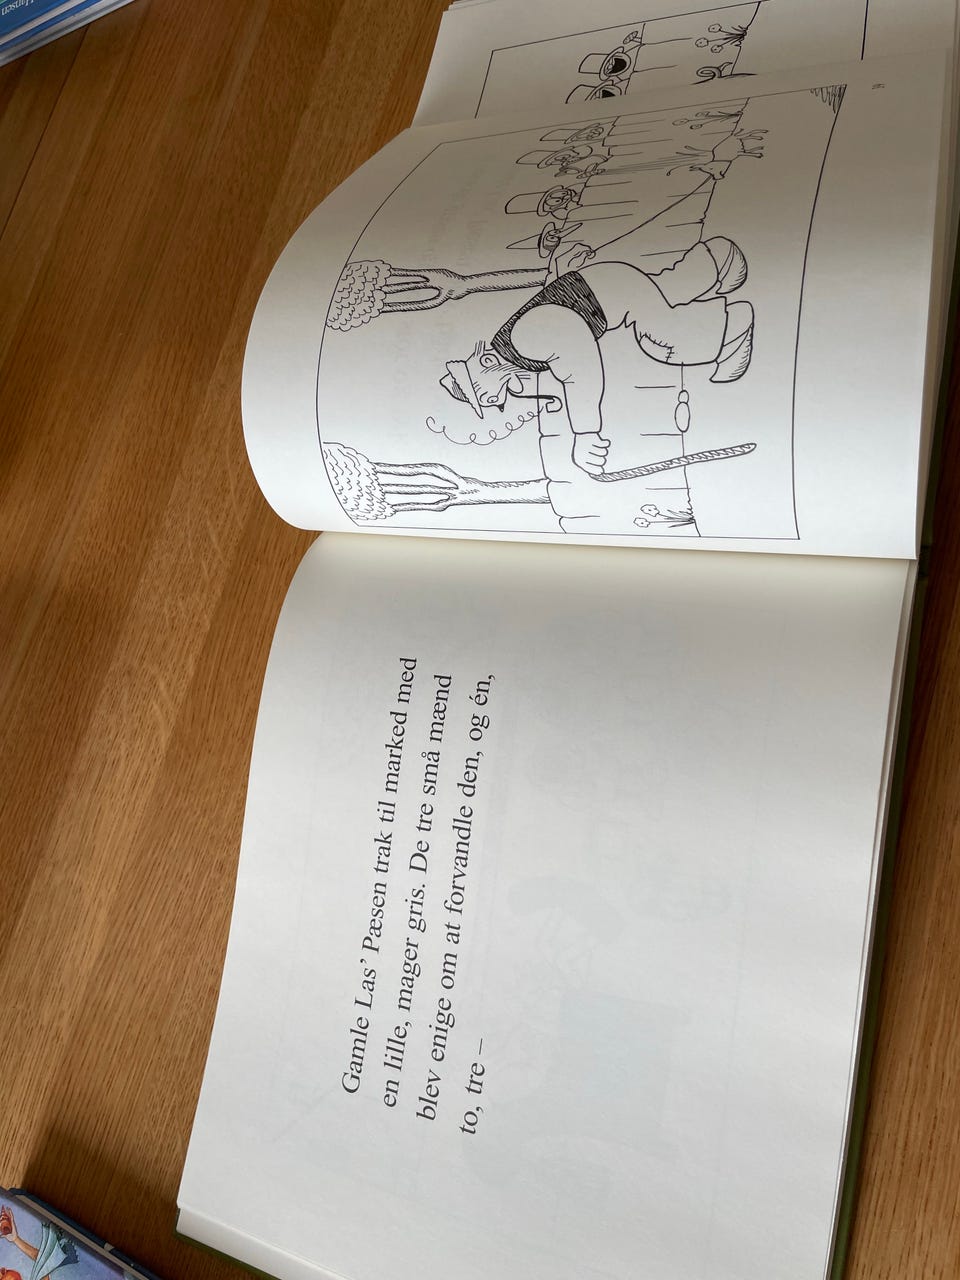 Gamle Las’ Pæsen trak til marked med
en lille, mager gris. De tre små mænd
blev enige om at forvandle den, og én,
to, tre –
Hansen